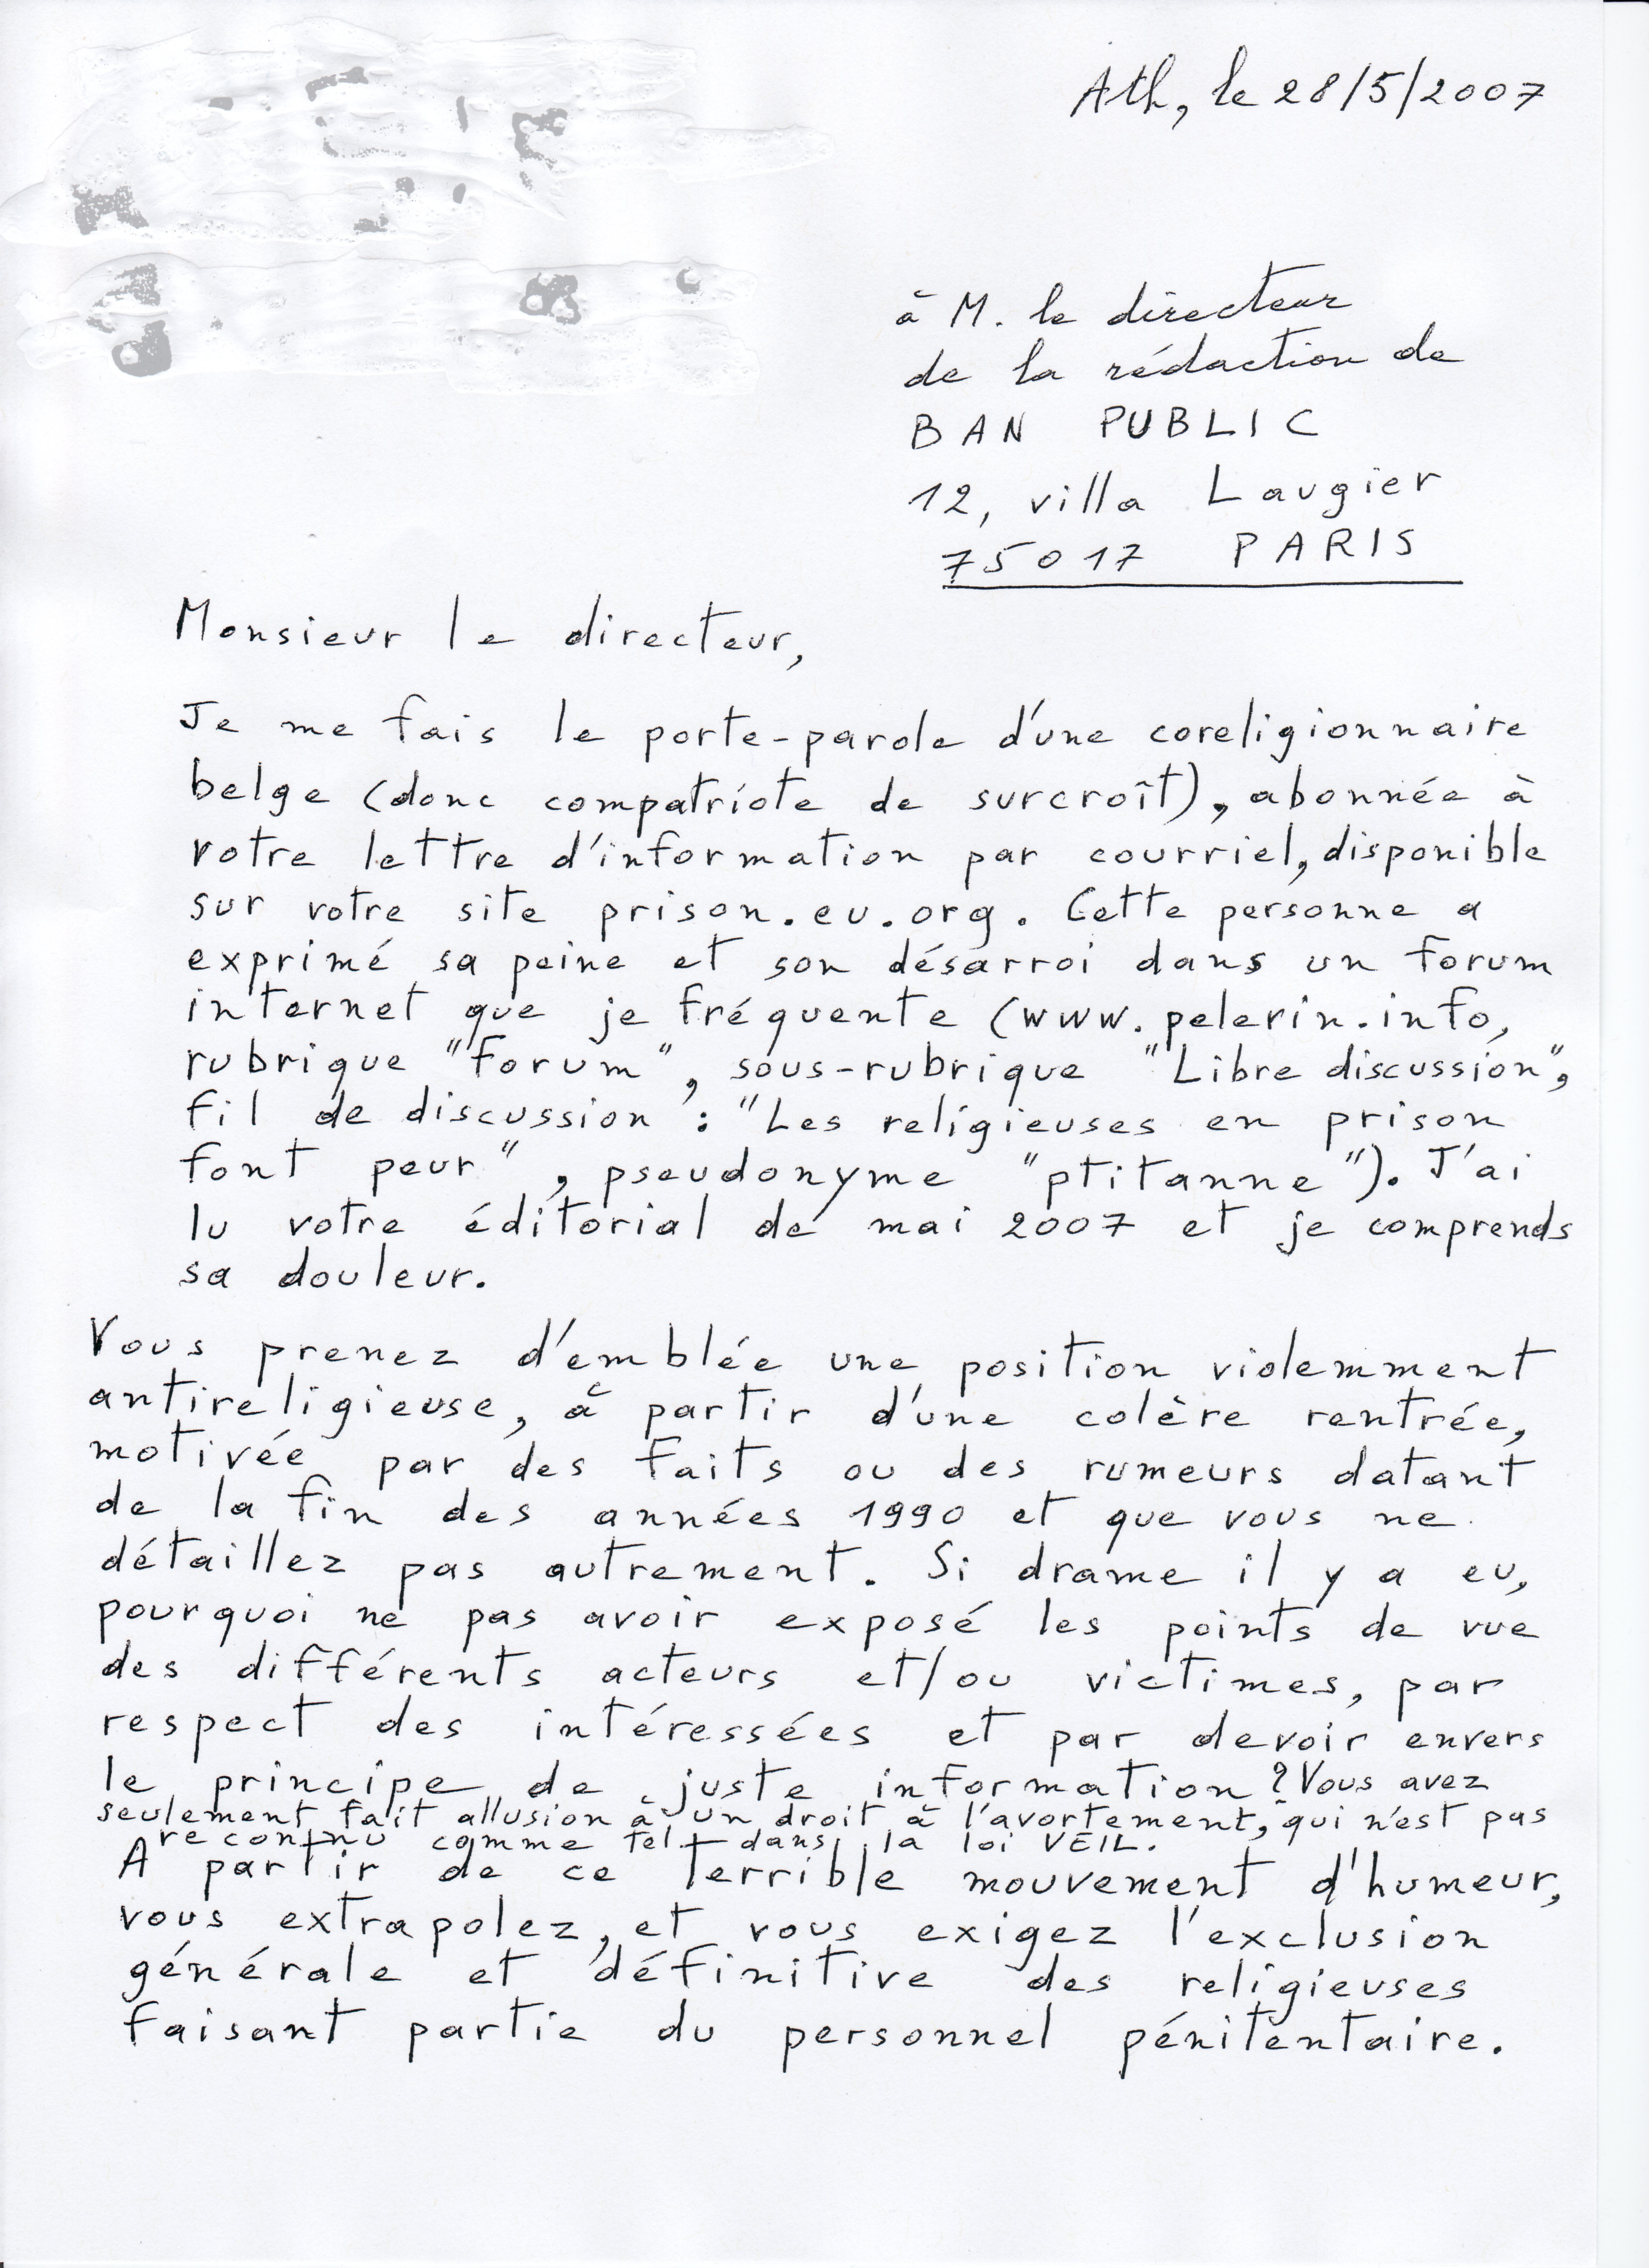 Ath, le 28/5/2007
à M. le directeur
de la rédaction de
BAN PUBLIC
12, villa Laugier
75017 PARIS
Monsieur le directeur,
Je me fais le porte-parole d'une coreligionnaire
belge (donc compatriote de surcroît), abonnée à
votre lettre d'information par courriel, disponible
sur votre site prison.eu.org. Cette personne a
exprimé sa peine et son désarroi dans un forum
internet que je fréquente (www.pelerin.info,
rubrique "forum", sous-rubrique "Libre discussion",
fil de discussion : "Les religieuses en prison
font peur", pseudonyme "ptitanne"). J'ai
lu votre éditorial de mai 2007 et je comprends
sa douleur.
Vous prenez d'emblée une position violemment
antireligieuse, à partir d'une colère rentrée,
motivée par des faits ou des rumeurs datant
de la fin des années 1990 et que vous ne
détaillez pas autrement. Si drame il y a eu,
pourquoi ne pas avoir exposé les points de vue
des différents acteurs et/ou victimes, par
respect des intéressées et par devoir envers
le principe de juste information ? Vous avez
seulement fait allusion à un droit à l'avortement, qui n'est pas
reconnu comme tel dans la loi VEIL.
A partir de ce terrible mouvement d'humeur,
vous extrapolez, et vous exigez l'exclusion
générale et définitive des religieuses
faisant partie du personnel pénitentaire.